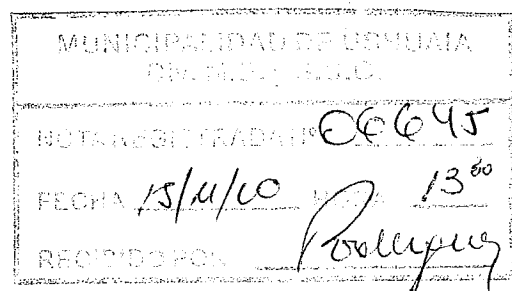 MUNICIPALIDAD DE USHUAIA
NOTA REGISTRADA Nº 06645
FECHA 15/11/10 13⁰⁰
RECIBIDO POR Rodriguez